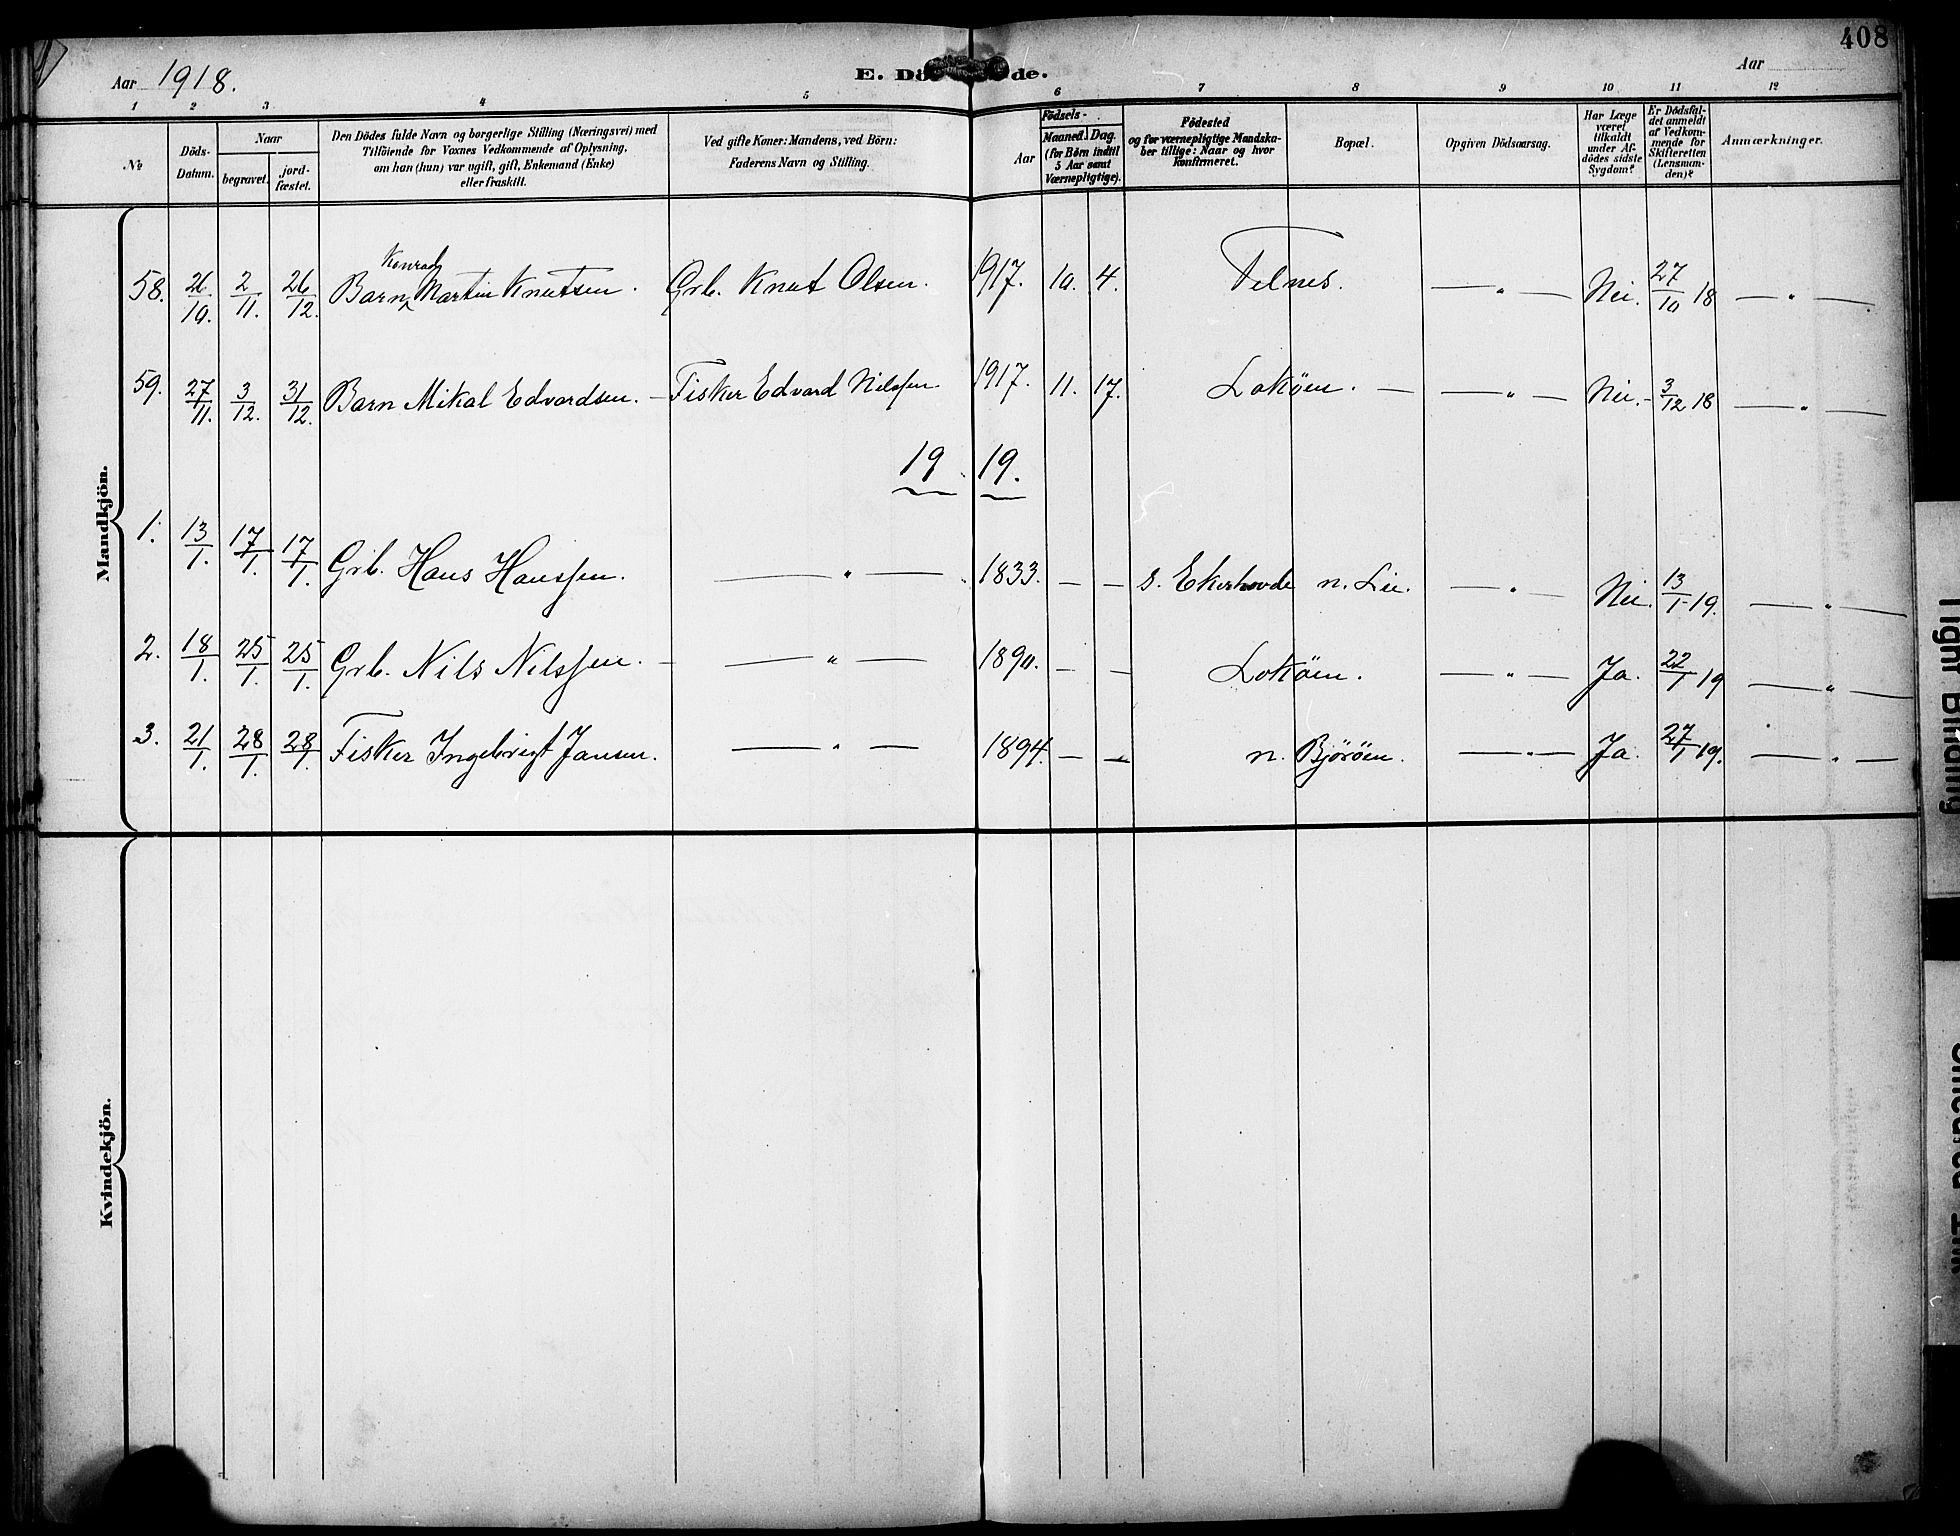 408
Aar 1918.
E. Dö de.
Aar
1 2 3 4 5 6 7 8 9 10 11 12
No
Döds-Datum.
Naar
begravet.
jord-fæstet.
Den Dödes fulde Navn og borgerlige Stilling (Næringsvei) med
Tilföiende for Voxnes Vedkommende af Oplysning,
om han (hun) var ugift, gift, Enkemand (Enke)
eller fraskilt.
Ved gifte Koner: Mandens, ved Börn:
Faderens Navn og Stilling.
Födsels-
Aar
Maaned. Dag.
(for Börn indtil
5 Aar samt
Værnepligtige).
Födested
og for værnepligtige Mandska-
ber tillige: Naar og hvor
konfirmeret.
Bopæl.
Opgiven Dödsaarsag.
Har Læge
været
tilkaldt
under Af-
dödes sidste
Sygdom?
Er Dödsfal-
det anmeldt
af Vedkom-
mende for
Skifteretten
(Lensman-
den)?
Anmærkninger.
Mandkjön.
58. 26/10. 2/11. 26/12. Barn Konrad Martin Knutsen. Grb. Knut Olsen. 1917. 10. 4. Telnes. — " — Nei. 27/10 18 — " —
59. 27/11. 3/12. 31/12. Barn Mikal Edvardsen. — Fisker Edvard Nilssen. 1917. 11. 17. Lokøen. — — " — Nei. - 3/12 18 — " —
19 19.
1. 13/1. 17/1. 17/1. Grb. Hans Hanssen. — " — 1833. — — s. Ekerhovde n. Lie. — " — Nei. 13/1-19. — " —
2. 18/1. 25/1. 25/1. Grb. Nils Nilssen. — — " — 1890. — — Lokøen. — " — Ja. 22/1 19 — " —
3. 21/1. 28/1. 28/1. Fisker Ingebrigt Jansen. — " — 1894. — — n. Bjørøen. — " — Ja. 27/1 19. — " —
Kvindekjön.
Tight Binding